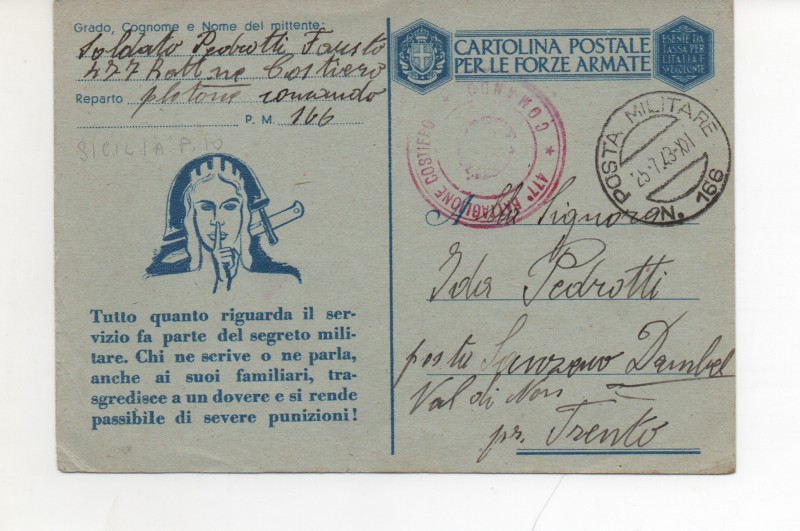 Grado, Cognome e Nome del mittente:
Soldato Pedrotti Fausto
477 Battne Costiero
Reparto plotone comando
P. M. 166
SICILIA P. 10
Tutto quanto riguarda il ser-
vizio fa parte del segreto mili-
tare. Chi ne scrive o ne parla,
anche ai suoi familiari, tra-
sgredisce a un dovere e si rende
passibile di severe punizioni!
CARTOLINA POSTALE
PER LE FORZE ARMATE
ESENTE DA
TASSA PER
L'ITALIA E
COMANDO
477° BATTAGLIONE COSTIERO
POSTA MILITARE
25.7.43-XXI
N. 166
Alla Signora
Ida Pedrotti
posta Sanzeno Dambel
Val di Non
pr. Trento